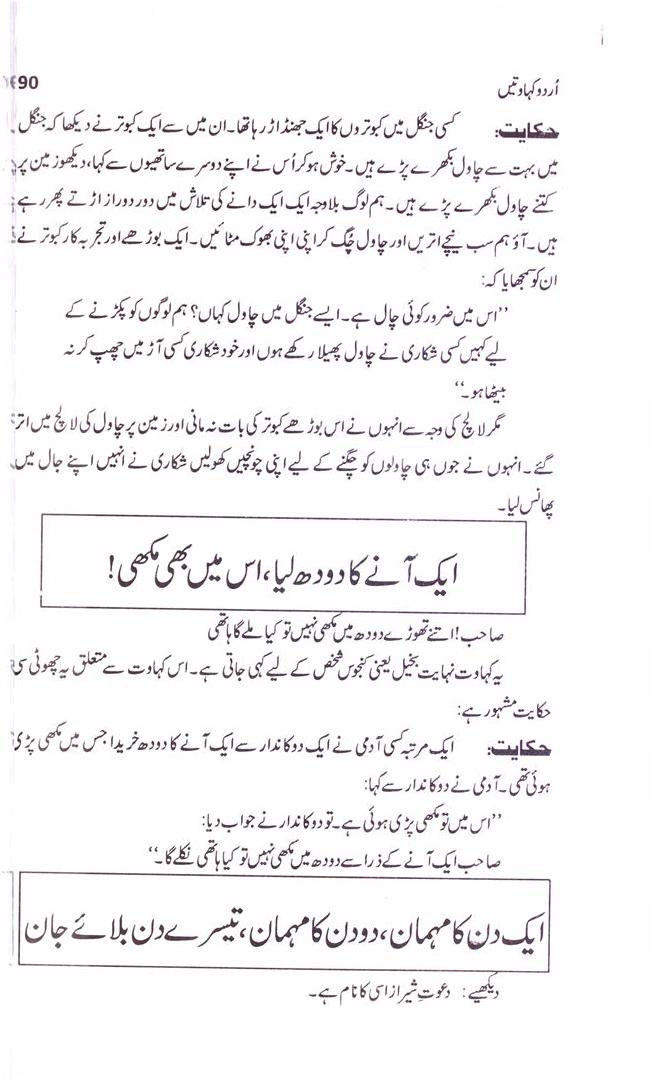 اُردو کہاوتیں
90
حکایت: کسی جنگل میں کبوتروں کا ایک جھنڈ اڑ رہا تھا۔ ان میں سے ایک کبوتر نے دیکھا کہ جنگل
میں بہت سے چاول بکھرے پڑے ہیں۔ خوش ہو کر اُس نے اپنے دوسرے ساتھیوں سے کہا، دیکھو زمین پر
کتنے چاول بکھرے پڑے ہیں۔ ہم لوگ بلاوجہ ایک ایک دانے کی تلاش میں دور دور از اڑتے پھر رہے
ہیں۔ آؤ ہم سب نیچے اتریں اور چاول چُگ کر اپنی اپنی بھوک مٹائیں۔ ایک بوڑھے اور تجربہ کار کبوتر نے
ان کو سمجھایا کہ:
”اس میں ضرور کوئی چال ہے۔ ایسے جنگل میں چاول کہاں؟ ہم لوگوں کو پکڑنے کے
لیے کہیں کسی شکاری نے چاول پھیلا رکھے ہوں اور خود شکاری کسی آڑ میں چھپ کر نہ
بیٹھا ہو۔“
مگر لالچ کی وجہ سے انہوں نے اس بوڑھے کبوتر کی بات نہ مانی اور زمین پر چاول کی لالچ میں اتر
گئے۔ انہوں نے جوں ہی چاولوں کو چگنے کے لیے اپنی چونچیں کھولیں شکاری نے انہیں اپنے جال میں
پھانس لیا۔
ایک آنے کا دودھ لیا، اس میں بھی مکھی!
صاحب! اتنے تھوڑے دودھ میں مکھی نہیں تو کیا ملے گا ہاتھی
یہ کہاوت نہایت بخیل یعنی کنجوس شخص کے لیے کہی جاتی ہے۔ اس کہاوت سے متعلق یہ چھوٹی سی
حکایت مشہور ہے:
حکایت: ایک مرتبہ کسی آدمی نے ایک دوکاندار سے ایک آنے کا دودھ خریدا جس میں مکھی پڑی
ہوئی تھی۔ آدمی نے دوکاندار سے کہا:
”اس میں تو مکھی پڑی ہوئی ہے۔ تو دوکاندار نے جواب دیا:
صاحب ایک آنے کے ذرا سے دودھ میں مکھی نہیں تو کیا ہاتھی نکلے گا۔“
ایک دن کا مہمان، دو دن کا مہمان، تیسرے دن بلائے جان
دیکھیے: دعوتِ شیراز اسی کا نام ہے۔